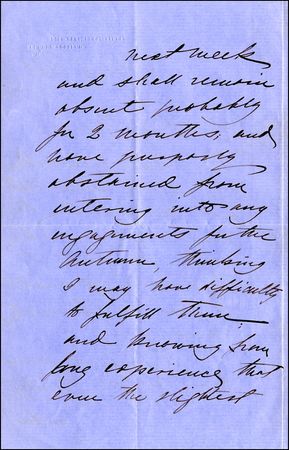 next week
and shall remain
absent probably
for 2 months, and
have purposly
abstained from
entering into any
engagements for the
Autumn thinking
I may have difficulty
to fulfill them
and knowing from
long experience that
even the slightest